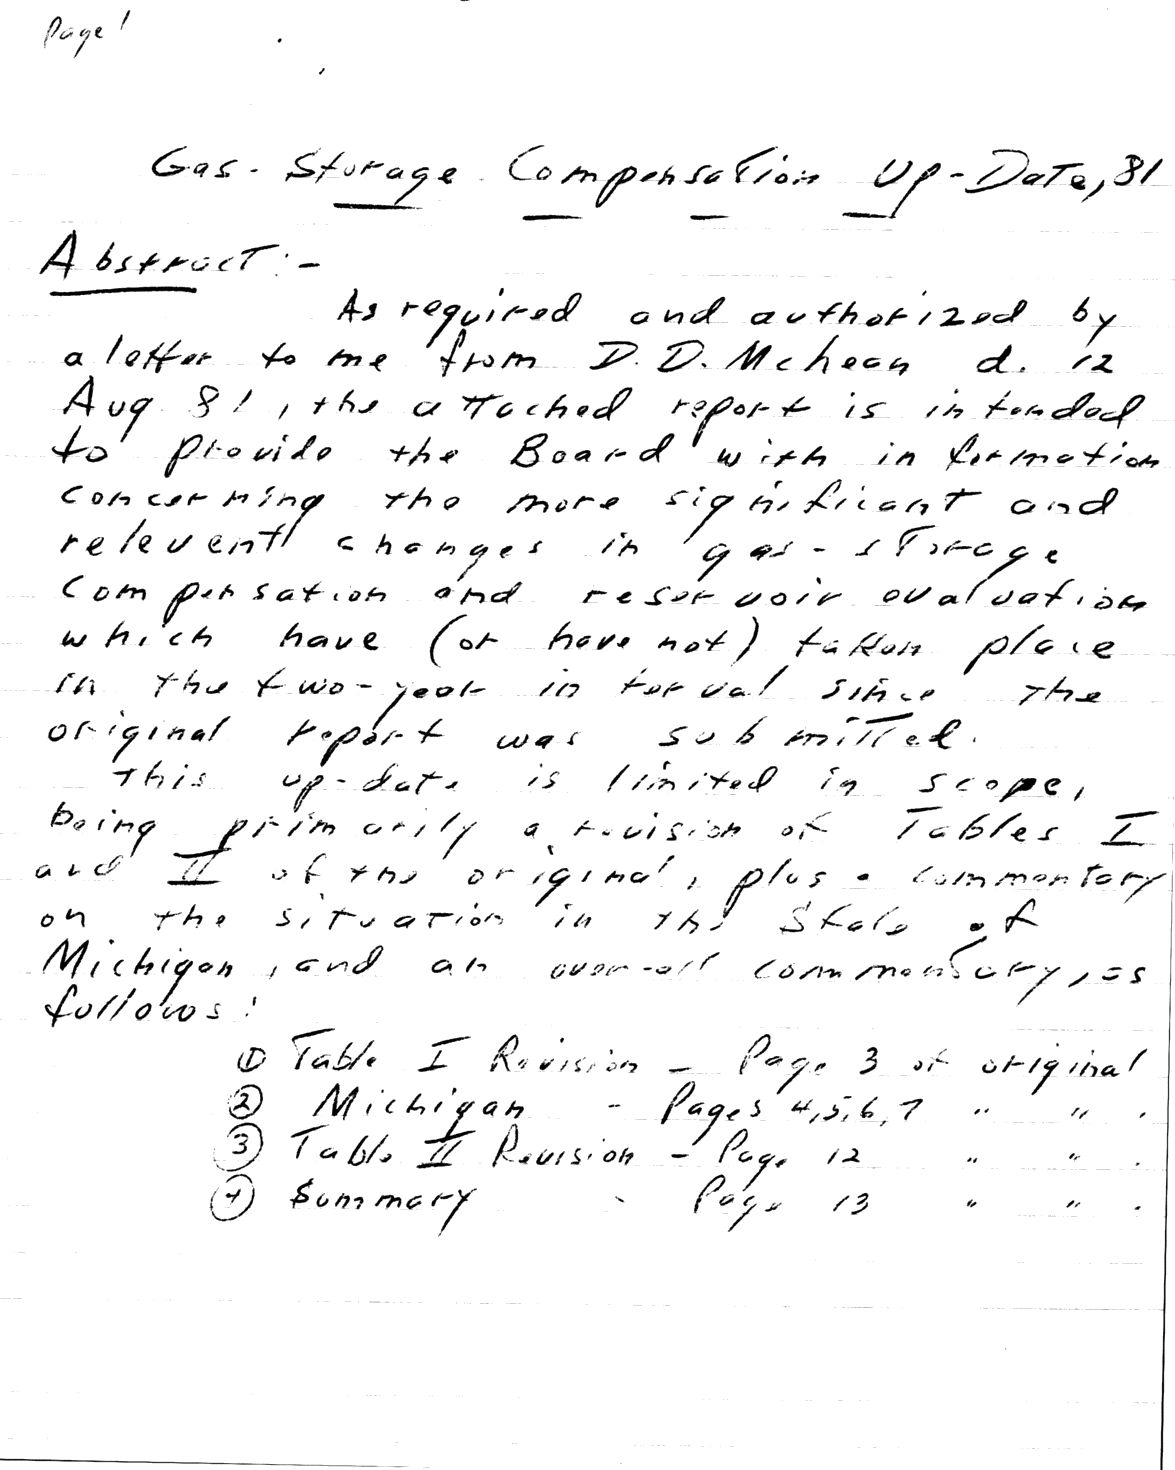 Page 1
Gas-Storage Compensation Up-Date, 81
Abstract:-
As required and authorized by
a letter to me from D. D. McLean d. 12
Aug 81, the attached report is intended
to provide the Board with information
concerning the more significant and
relevent changes in gas-storage
compensation and reservoir evaluation
which have (or have not) taken place
in the two-year interval since the
original report was submitted.
This up-date is limited in scope,
being primarily a revision of Tables I
and II of the original, plus a commentary
on the situation in the State of
Michigan, and an over-all commentary, as
follows:
① Table I Revision - Page 3 of original
② Michigan - Pages 4,5,6,7 " " .
③ Table II Revision - Page 12 " " .
④ Summary - Page 13 " " .